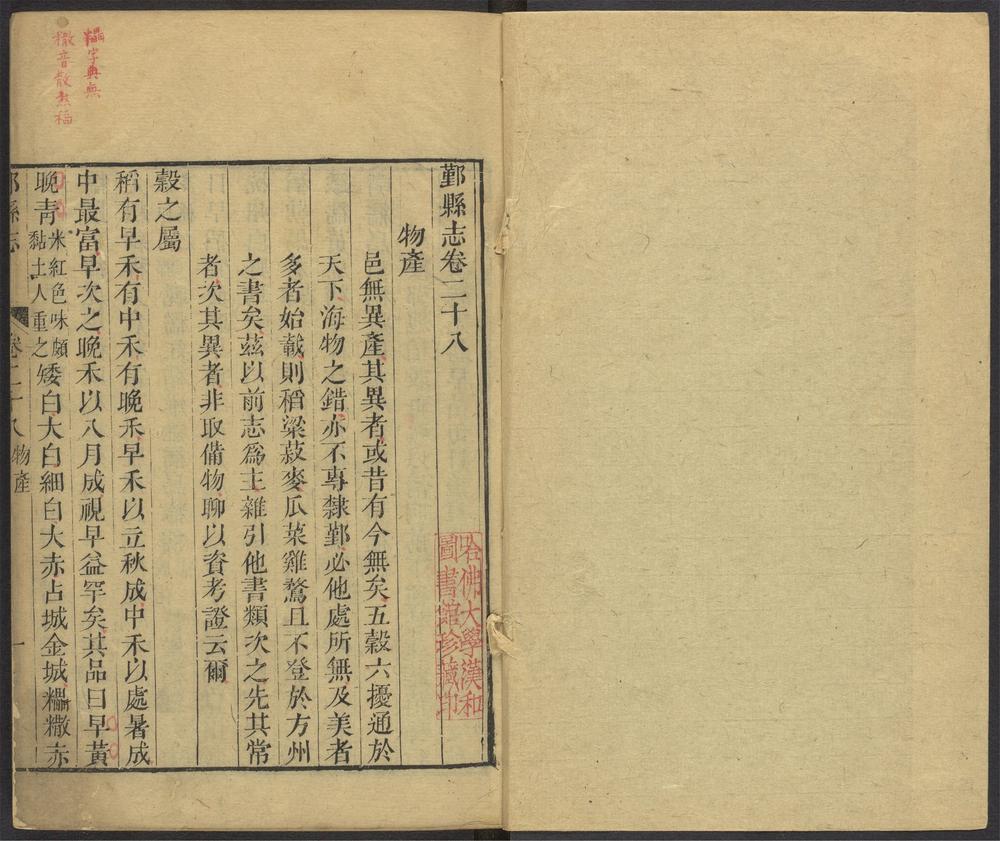 鄞縣志卷二十八
物產
邑無異產其異者或昔有今無矣五穀六擾通於
天下海物之錯亦不專隸鄞必他處所無及美者
多者始載則稻粱菽麥瓜菜雞鶩且不登於方州
之書矣茲以前志爲主雜引他書類次之先其常
者次其異者非取備物聊以資考證云爾
穀之屬
稻有早禾有中禾有晚禾早禾以立秋成中禾以處暑成
中最富早次之晚禾以八月成視早益罕矣其品曰早黃
晚靑米紅色味頗黏土人重之矮白大白細白大赤占城金城糯糤赤
鄞縣志
卷二十八物產
一
哈佛大學漢和
圖書館珍藏印
字典無
糤音散熬稻